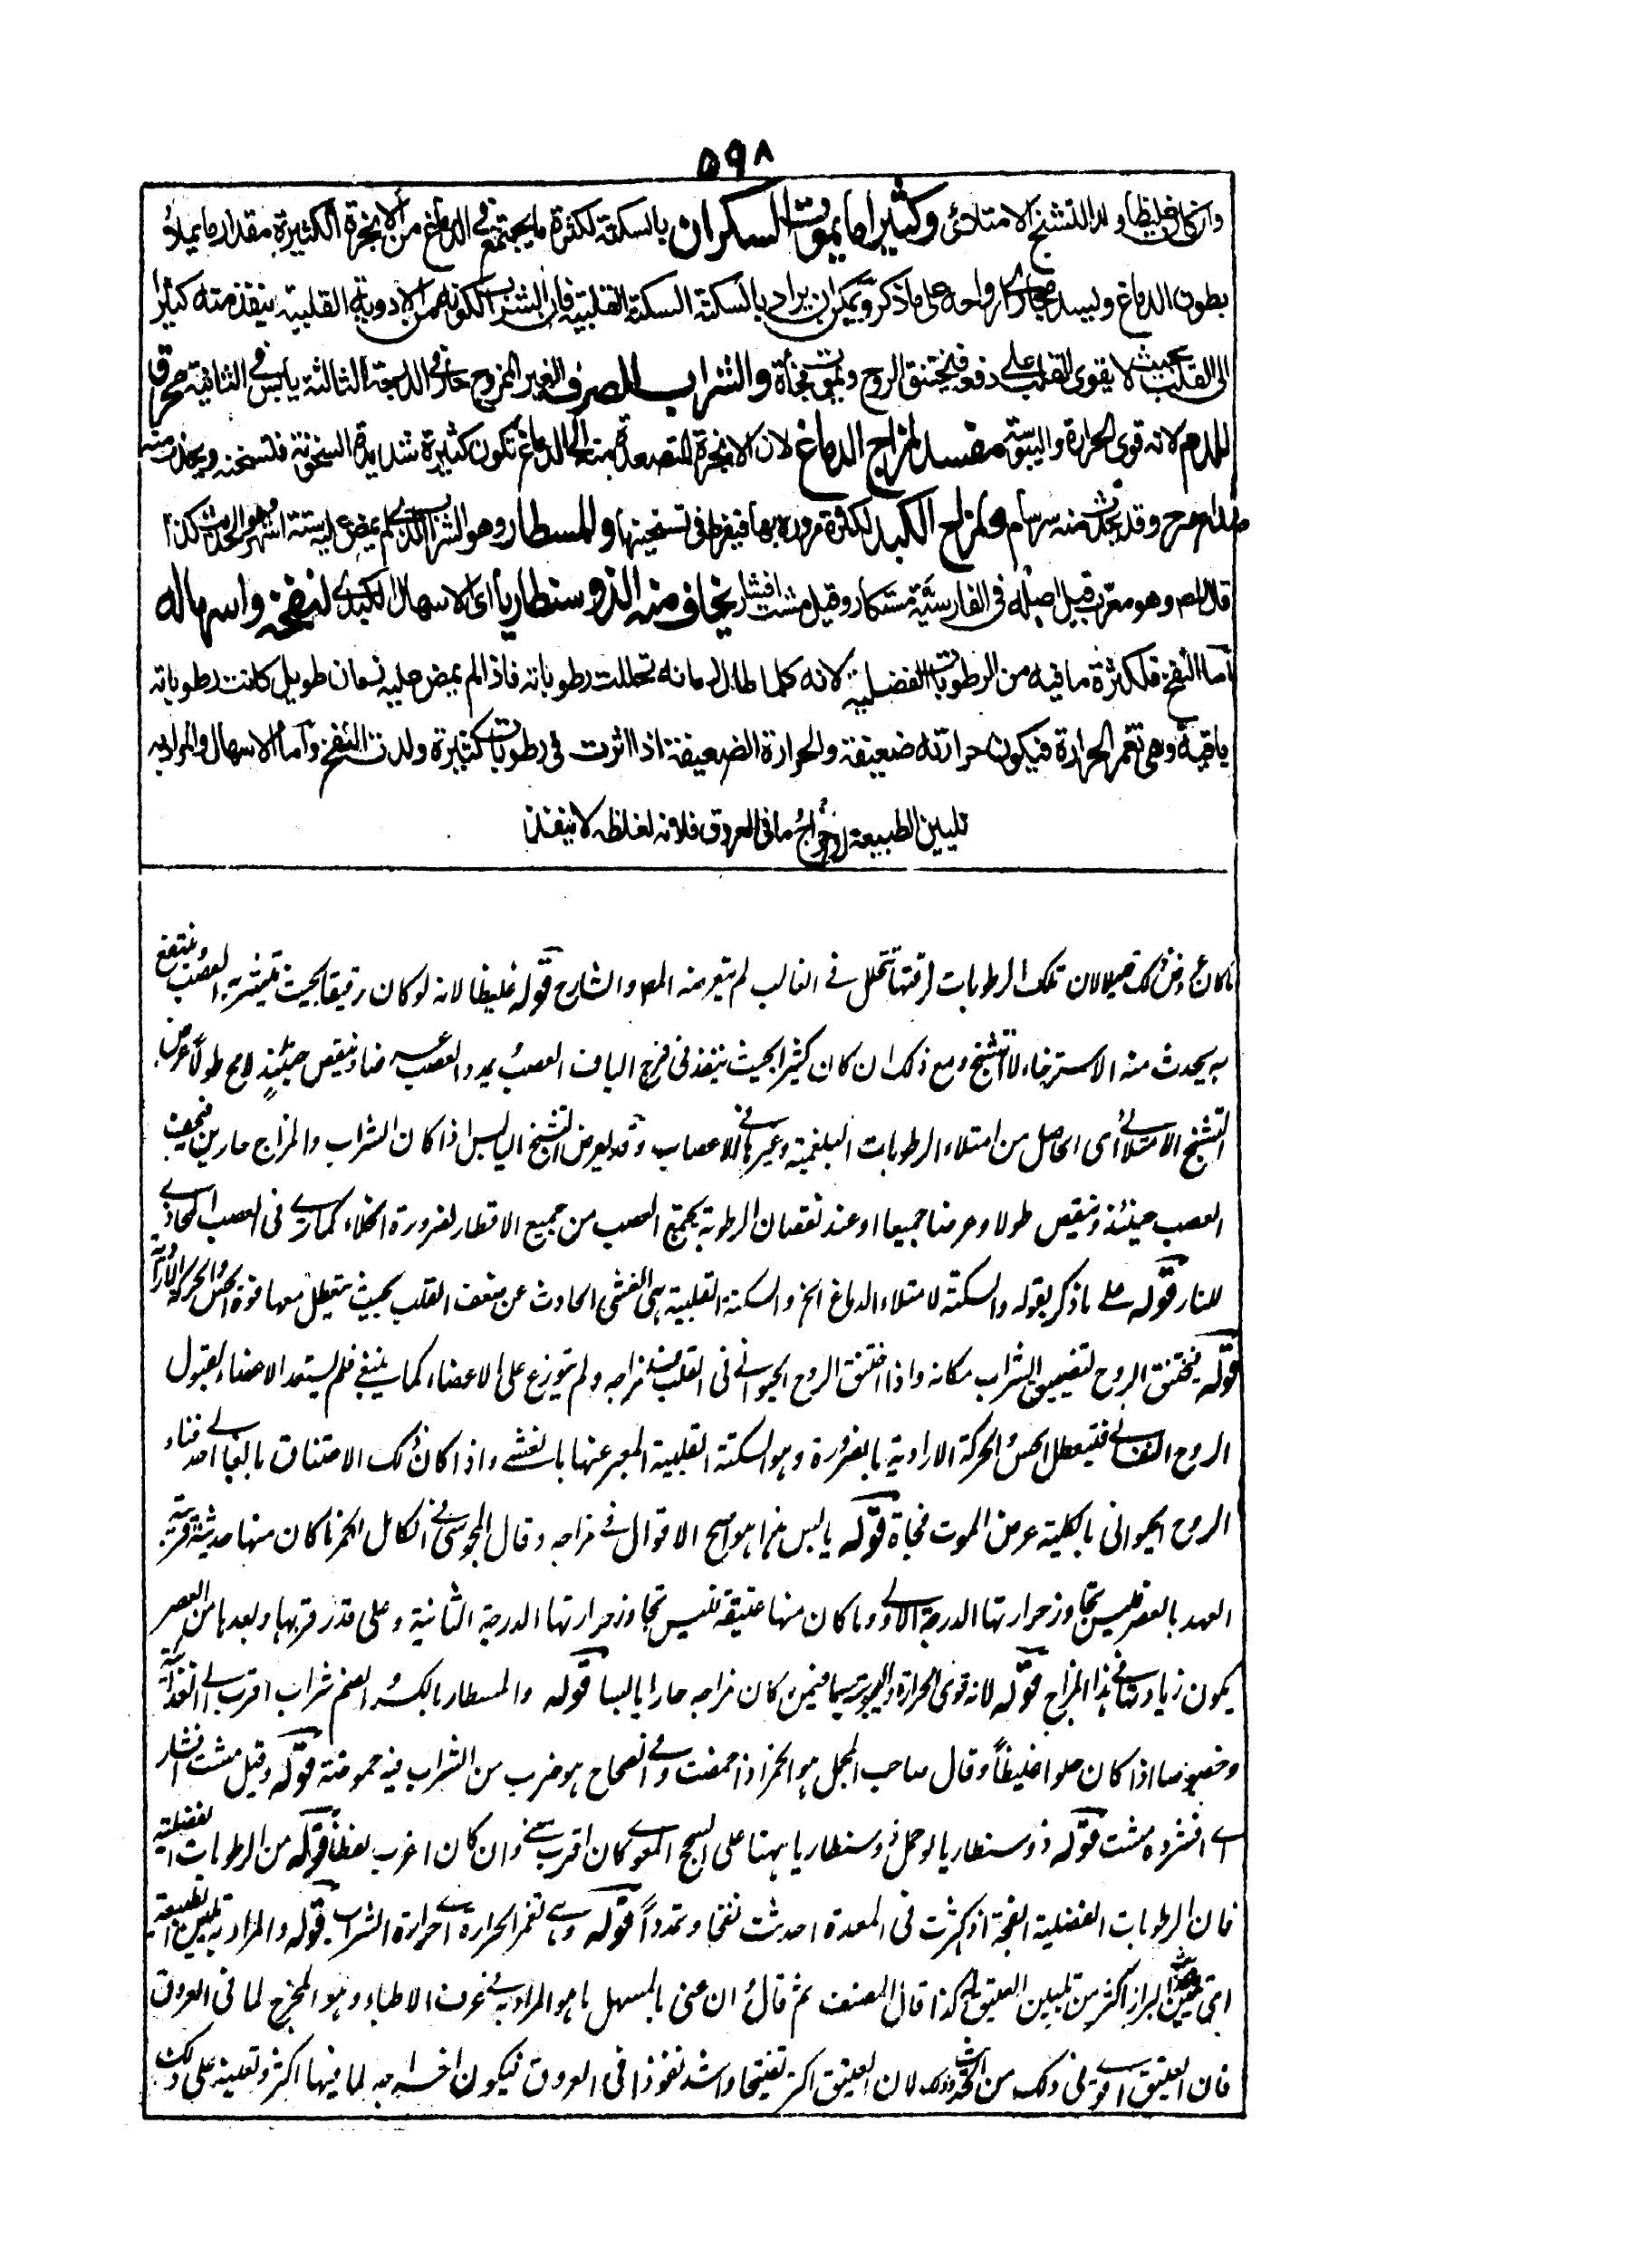 ٥٩٨
وان كان غليظا ولد التشنج الامتلائى وكثيرا ما يموت السكران بالسكتة لكثرة ما يجتمع فى الدماغ من الابخرة الكثيرة بمقدار ما يملأ
بطون الدماغ ويسد مجارى ارواحه على ما ذكر ويمكن ان يراد بالسكتة السكتة القلبية فان الشراب لكونه من الادوية القلبية ينفذ منه كثيرا
الى القلب بحيث لا يقوى القلب على دفعه فيختنق الروح ويموت فجأة والشراب الصرف الغير الممزوج حار فى الدرجة الثالثة يابس فى الثانية محرق
للدم لانه قوى الحرارة واليبوسة مفسد لمزاج الدماغ لان الابخرة المتصعدة منه الى الدماغ تكون كثيرة شديدة السخونة فتسخنه ويحدث منه
صداع حر وقد يحدث منه سرسام ولمزاج الكبد لكثرة مروره بها فيفرط فى تسخينها والمسطار وهو الشراب الذى لم يمض عليه ستة اشهر وهو الحديث كذا
قال المص وهو معرب قيل اصله فى الفارسية مشتكار وقيل مشت افشار يخاف منه الذوسنطاريا اى الاسهال الكبدى لنفخه واسهاله
اما النفخ فلكثرة ما فيه من الرطوبات الفضلية لانه كلما طال زمانه تحللت رطوباته فاذا لم يمض عليه زمان طويل كانت رطوباته
باقية وهى تغمر الحرارة فيكون حرارته ضعيفة والحرارة الضعيفة اذا اثرت فى رطوبات كثيرة ولدت النفخ واما الاسهال والمراد به
تليين الطبيعة لا اخراج ما فى العروق فلانه لغلظه لا ينفذ
ما كان عروض ذلك قليلا لان تلك الرطوبات لرقتها تتحلل فى الغالب لم يتعرضه المص والشارح قوله غليظا لانه لو كان رقيقا بحيث يتشربه العصب وينتفع
به يحدث منه الاسترخاء لا التشنج ومع ذلك ان كان كثيرا بحيث ينفذ فى فرج الياف العصب يمدد العصب عرضا وينقص حينئذ طولا عرض
التشنج الامتلائى اى الحاصل من امتلاء الرطوبات البلغمية وغيرها فى الاعصاب وقد يعرض التشنج اليابس اذا كان الشراب والمزاج حارين فيجف
العصب حينئذ وينقص طولا وعرضا جميعا او عند نقصان الرطوبة يجتمع العصب من جميع الاقطار لضرورة الخلاء كما ترى فى العصب المحاذى
للنار قوله على ما ذكر بقوله والسكتة لامتلاء الدماغ الخ والسكتة القلبية هى الغشى الحادث عن ضعف القلب بحيث يتعطل معها قوة الحس والحركة الارادية
قوله فيختنق الروح لتضييق الشراب مكانه واذا اختنق الروح الحيوانى فى القلب فسد مزاجه ولم يتوزع على الاعضاء كما ينبغى فلم يستعد الاعضاء لقبول
الروح النفسانى فيتعطل الحس والحركة الارادية بالضرورة وهو السكتة القلبية المعبر عنها بالغشى واذا كان ذلك الاختناق بالغا الى حد فناء
الروح الحيوانى بالكلية عرض الموت فجاة قوله يابس هذا هو اصح الاقوال فى مزاجه وقال المجوسى فى الكامل الخمر ما كان منها حديثة قريبة
العهد بالعصر فليس تجاوز حرارتها الدرجة الاولى وما كان منها عتيقة فليس تجاوز حرارتها الدرجة الثانية وعلى قدر قربها وبعدها من العصر
يكون زيادتها فى هذا المزاج قوله لانه قوى الحرارة واليبوسة سيما فيمن كان مزاجه حارا يابسا قوله والمسطار بالكسر الضم شراب اقرب الى الغذائية
وخصوصا اذا كان حلوا غليظا وقال صاحب المجمل هو الخمر اذا حمضت وفى الصحاح هو ضرب من الشراب فيه حموضة قوله وقيل مشت افشار
اى افشرده مشت قوله ذوسنطاريا لو حمل ذوسنطاريا ههنا على السحج المعوى كان اقرب معنى وان كان اغرب لفظا قوله من الرطوبات الفضلية
فان الرطوبات الفضلية الفجة اذا كثرت فى المعدة احدثت نفخا وتمددا قوله وهى تغمر الحرارة اى حرارة الشراب قوله والمراد به تليين الطبيعة
البراز اكثر من تليين العتيق هكذا قال المصنف ثم قال ان عنى بالمسهل ما هو المراد به فى عرف الاطباء وهو المخرج لما فى العروق
فان العتيق اقوى فى ذلك من الحديث لان العتيق اكثر تفتيحا واشد نفوذا فى العروق فيكون اخراجه لما فيها اكثر وتعلية على ذلك